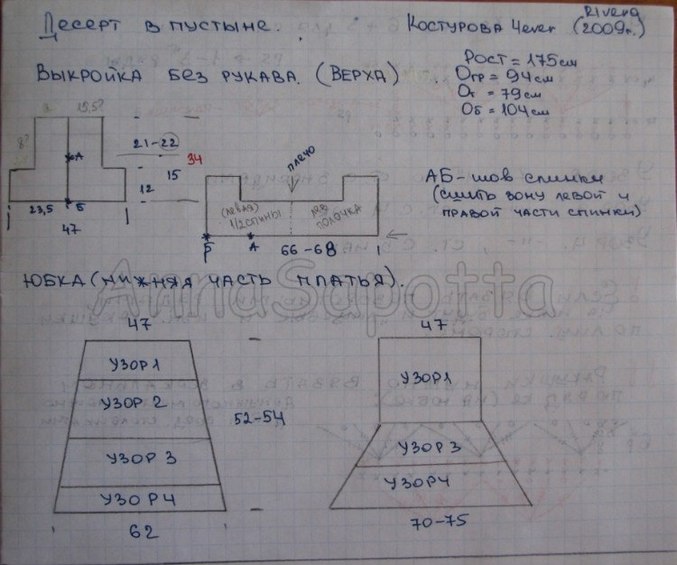 Десерт в пустыне.
Костурова 4ever
Rivera
(2009г.)
Выкройка без рукава. (Верха)
Рост = 175см
Огр = 94см
От = 79см
Об = 104см
21-22
34
15
12
А
Б
23,5
47
плечо
(левая)
1/2 спины
лев
полочка
Б
А
66-68
АБ-шов спинки
(сшить зону левой и
правой части спинки)
AnnaSapotta
Юбка (нижняя часть платья).
47
47
узор 1
узор 2
узор 3
узор 4
52-54
62
узор 1
узор 3
узор 4
70-75